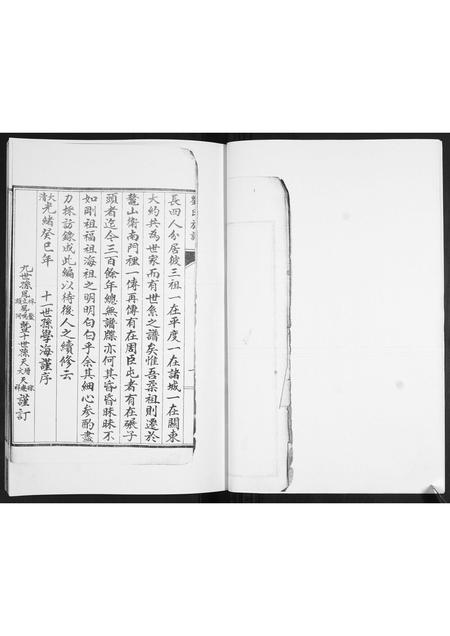 長四人分居彼三祖一在平度一在諸城一在關東
大約共為世家而有世系之譜矣惟吾柔祖則遷於
鰲山衛南門裡一傳再傳有在周臣屯者有在碾子
頭者迄今三百餘年總無譜牒亦何其昏昏昧昧不
如剛祖福祖海祖之明明白白乎余其細心参酌盡
力採訪錄成此編以待後人之續修云
大清光緒癸巳年 十一世孫學海謹序
九世孫 十世孫天 謹訂